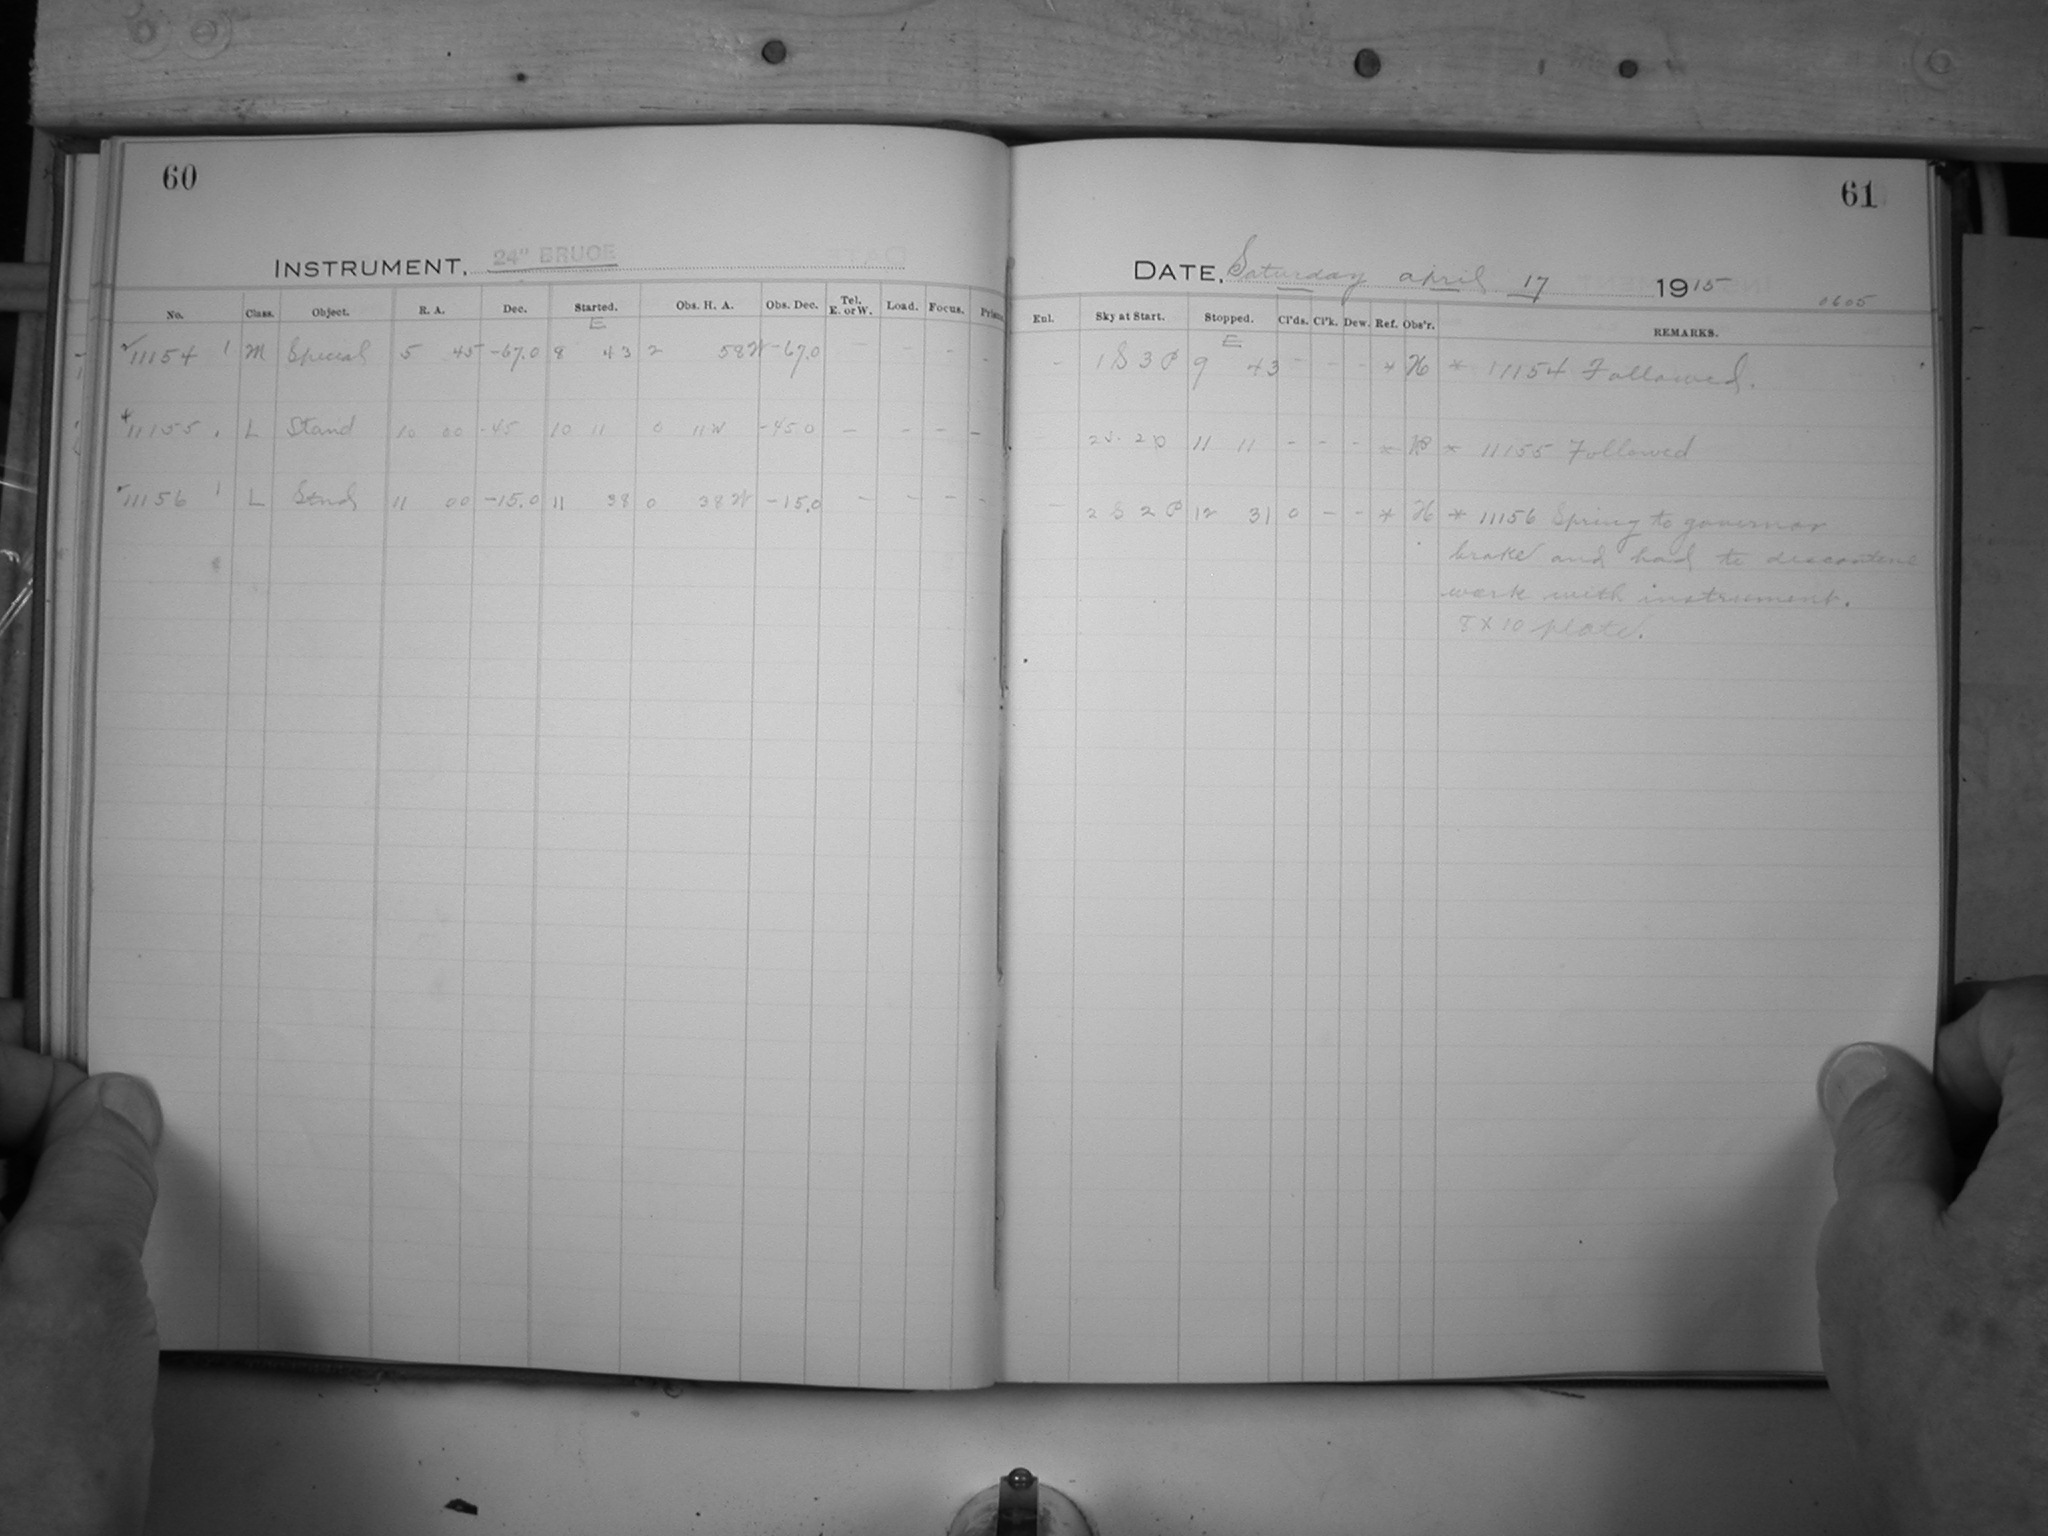 60
INSTRUMENT, 24" BRUCE
No. Class. Object. R. A. Dec. Started. Obs. H. A. Obs. Dec. Tel. E. or W. Load. Focus. Prism.
E
11154 1 M Special 5 45 -67.0 8 43 2 58W -67.0 - - - -
11155 L Stand 10 00 -45 10 11 0 11W -45.0 - - - -
11156 1 L Stnd 11 00 -15.0 11 38 0 38W -15.0 - - - -
61
DATE, Saturday april 17 1915
0605
Enl. Sky at Start. Stopped. Cl'ds. Cl'k. Dew. Ref. Obs'r. REMARKS.
E
- 1 S 3 P 9 43 - - - * H * 11154 Followed.
2S. 2P 11 11 - - - * * 11155 Followed
- 2 S 2 P 12 31 0 - - * H * 11156 Spring to governor
brake and had to
work with instrument.
8 X 10 plate.